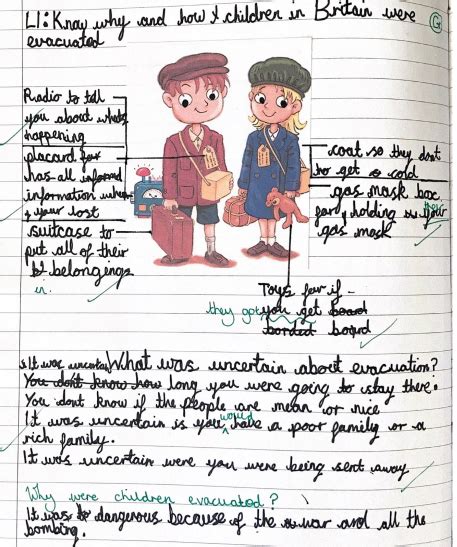 LI: Know why and how children in Britain were
evacuated
G
Radio to tell
you about whats
happening
placard for
has all infored
information when
your lost
suitcase to
put all of their
belongings
in.
coat so they dont
to get cold
gas mask box
for holding their
gas mask
Toys for if
they got you get board
borded board
It was uncertain What was uncertain about evacuation?
You dont know how long you were going to stay there.
You dont know if the people are mean or nice
It was uncertain is you would have a poor family or a
rich family.
It was uncertain were you were being sent away
Why were children evacuated?
It was dangerous because of the war and all the
bombing.